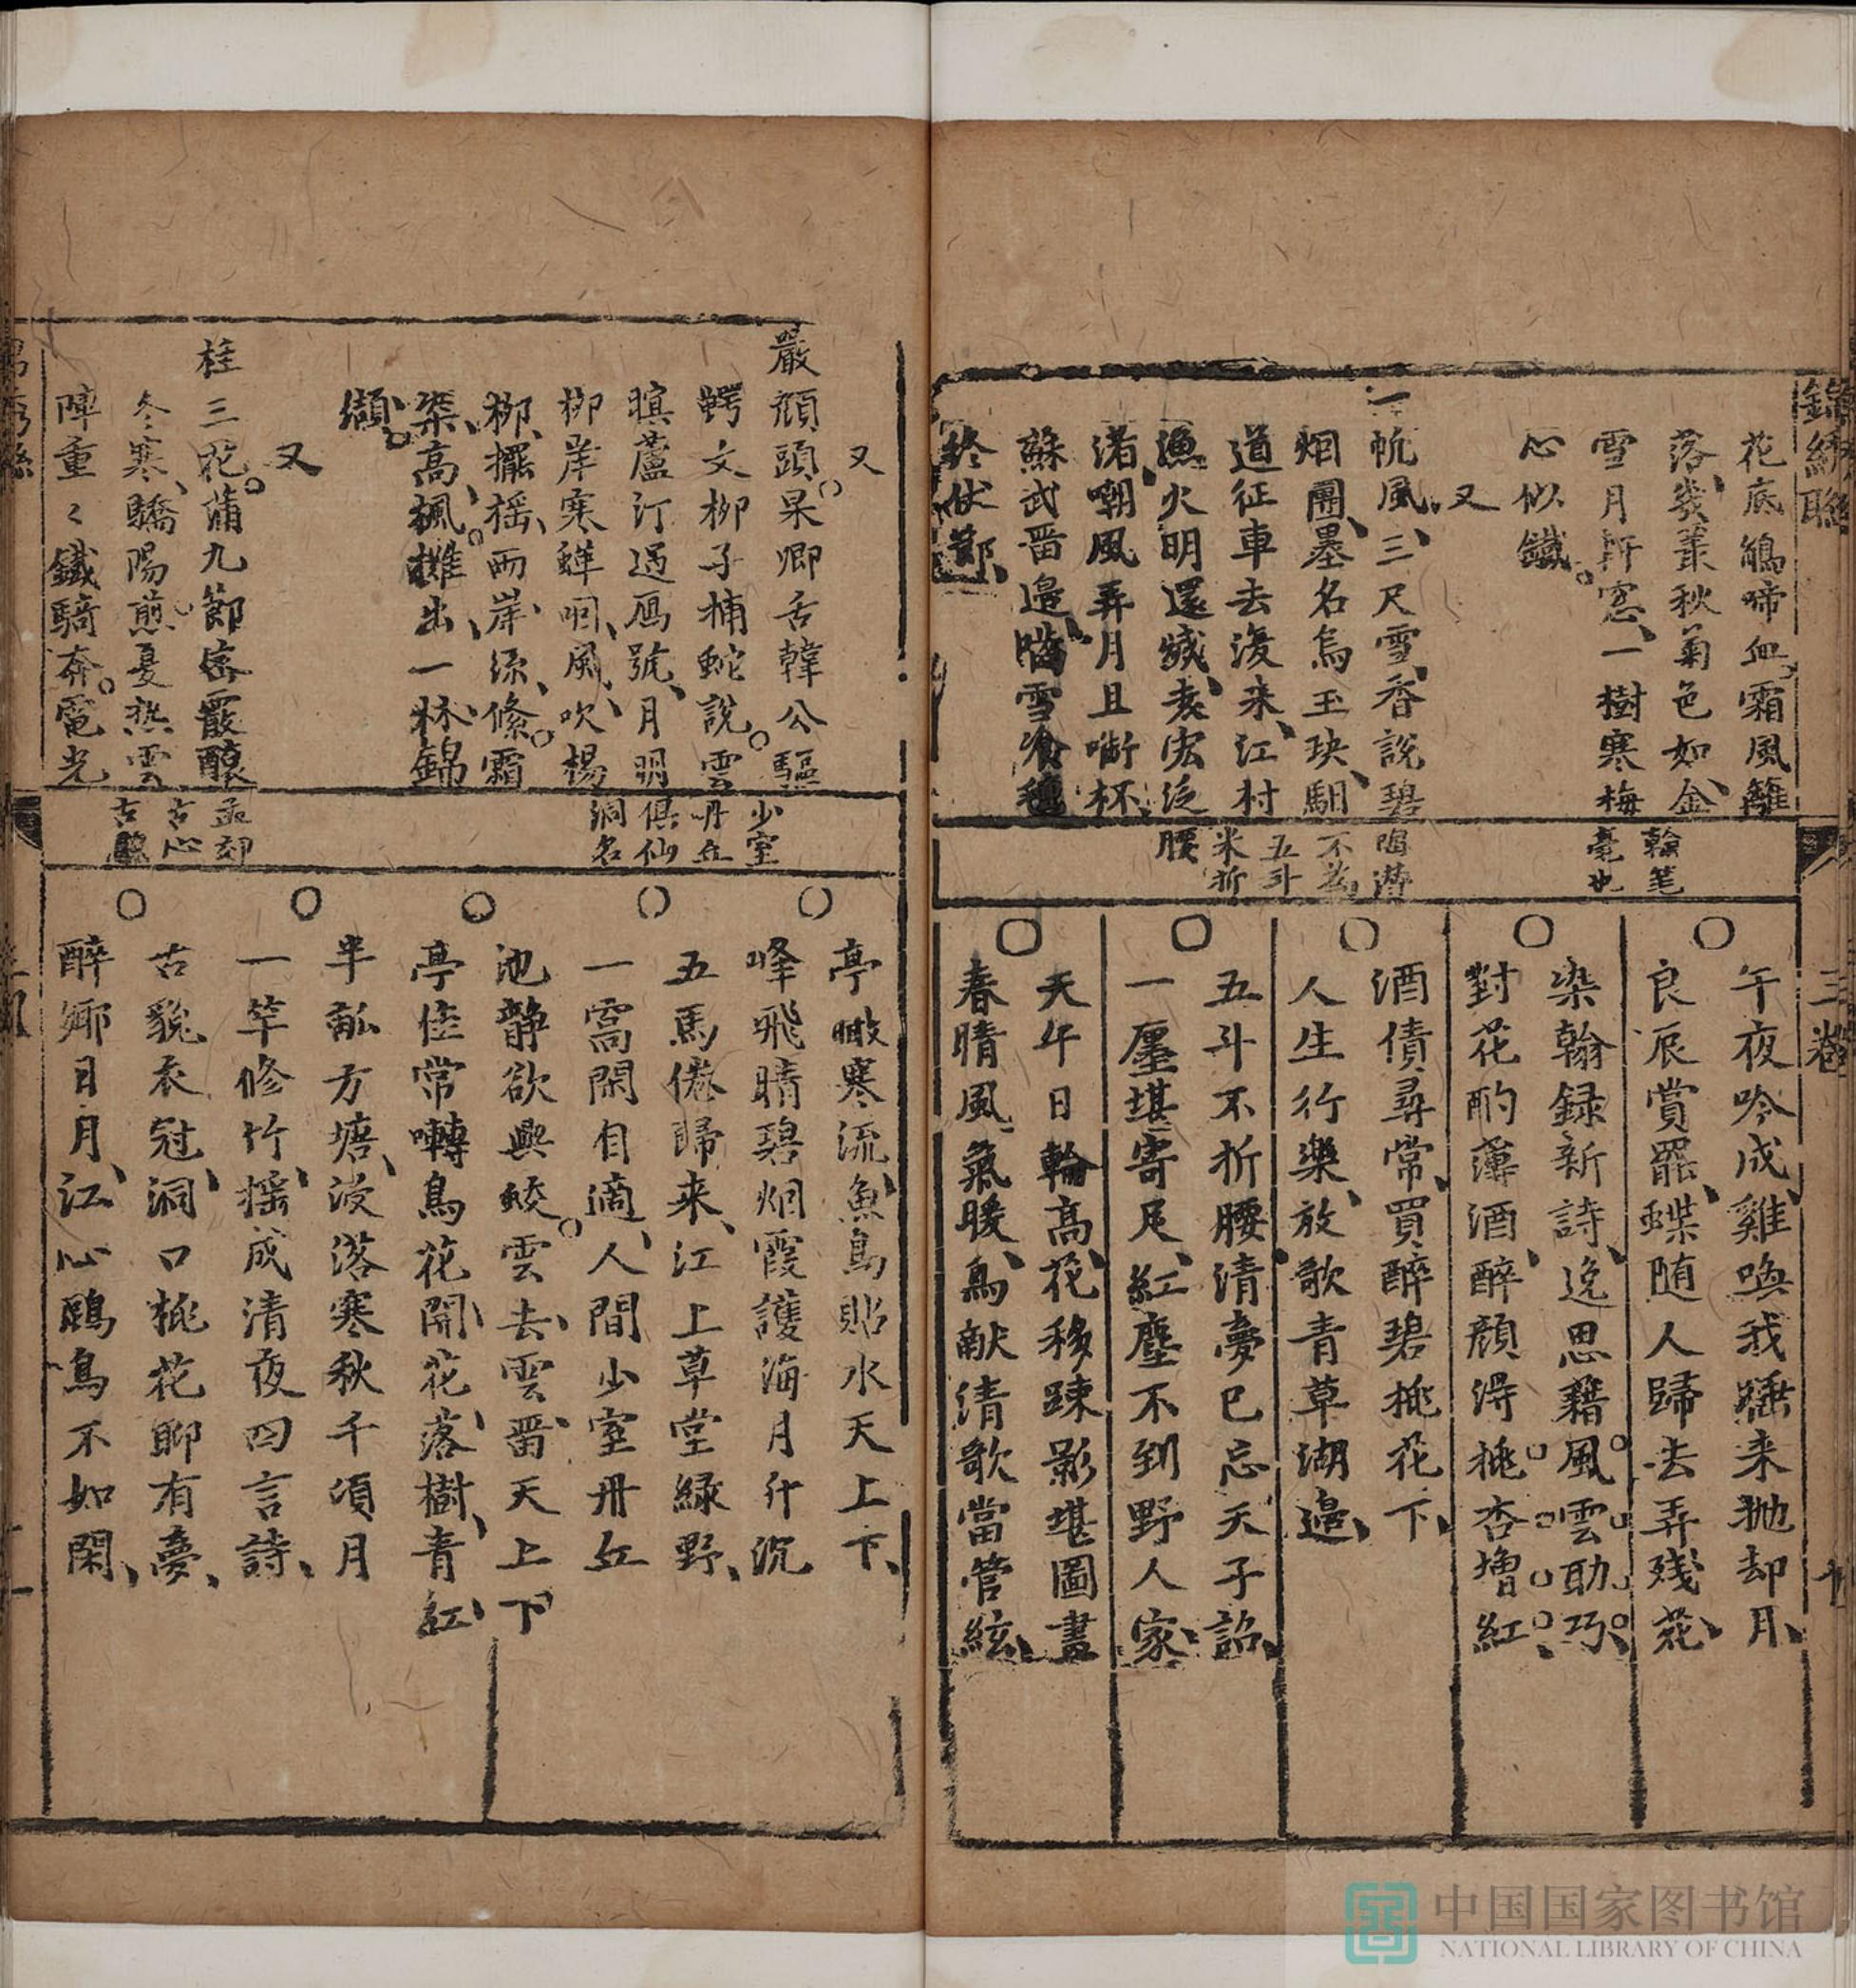 錦綉聯
三卷
花底鵑啼血霜風籬
落幾叢秋菊色如金
雪月軒窓一樹寒梅
心似鐵
又
一帆風三尺雪香說碧
烟圑墨名烏玉玦駟
道征車去復来江村
漁火明還滅袁宏泛
渚嘲風弄月且啣杯
蘇武畱邉嚙雪飡氊
終伏節
翰笔
毫也
陶潜
不為
五斗
米折
腰
午夜吟成雞喚我睡来抛却月
良辰賞罷蝶随人歸去弄殘花
染翰録新詩逸思藉風雲助巧
對花酌薄酒醉顔得桃杏增紅
酒債尋常買醉碧桃花下
人生行樂放歌青草湖邉
五斗不折腰清夢已忘天子詔
一廛堪寄足紅塵不到野人家
天午日輪高花移踈影堪圖畫
春晴風氣暖鳥献清歌當管絃
又
嚴顔頭杲卿舌韓公驅
鰐文柳子捕蛇說雲
暝蘆汀過鴈號月明
柳岸寒蟬咽風吹楊
柳擺搖兩岸綠絛霜
染高楓攤出一林錦
纈
又
桂三花蒲九節宻嚴釀
冬寒驕陽煎夏熱雲
陣重〻鐵騎奔電光
少室
丹丘
俱仙
洞名
孟郊
古心
古
亭瞰寒流魚鳥貼水天上下
峰飛晴碧烟霞護海月升沉
五馬倦歸来江上草堂綠野
一窩閑自適人間少室丹丘
池静欲興蛟雲去雲畱天上下
亭佳常囀鳥花開花落樹青紅
半畝方塘浸落寒秋千頃月
一竿修竹揺成清夜四言詩
古貌衣冠洞口桃花聊有夢
醉鄉日月江心鷗鳥不如閑
中国国家图书馆
NATIONAL LIBRARY OF CHINA